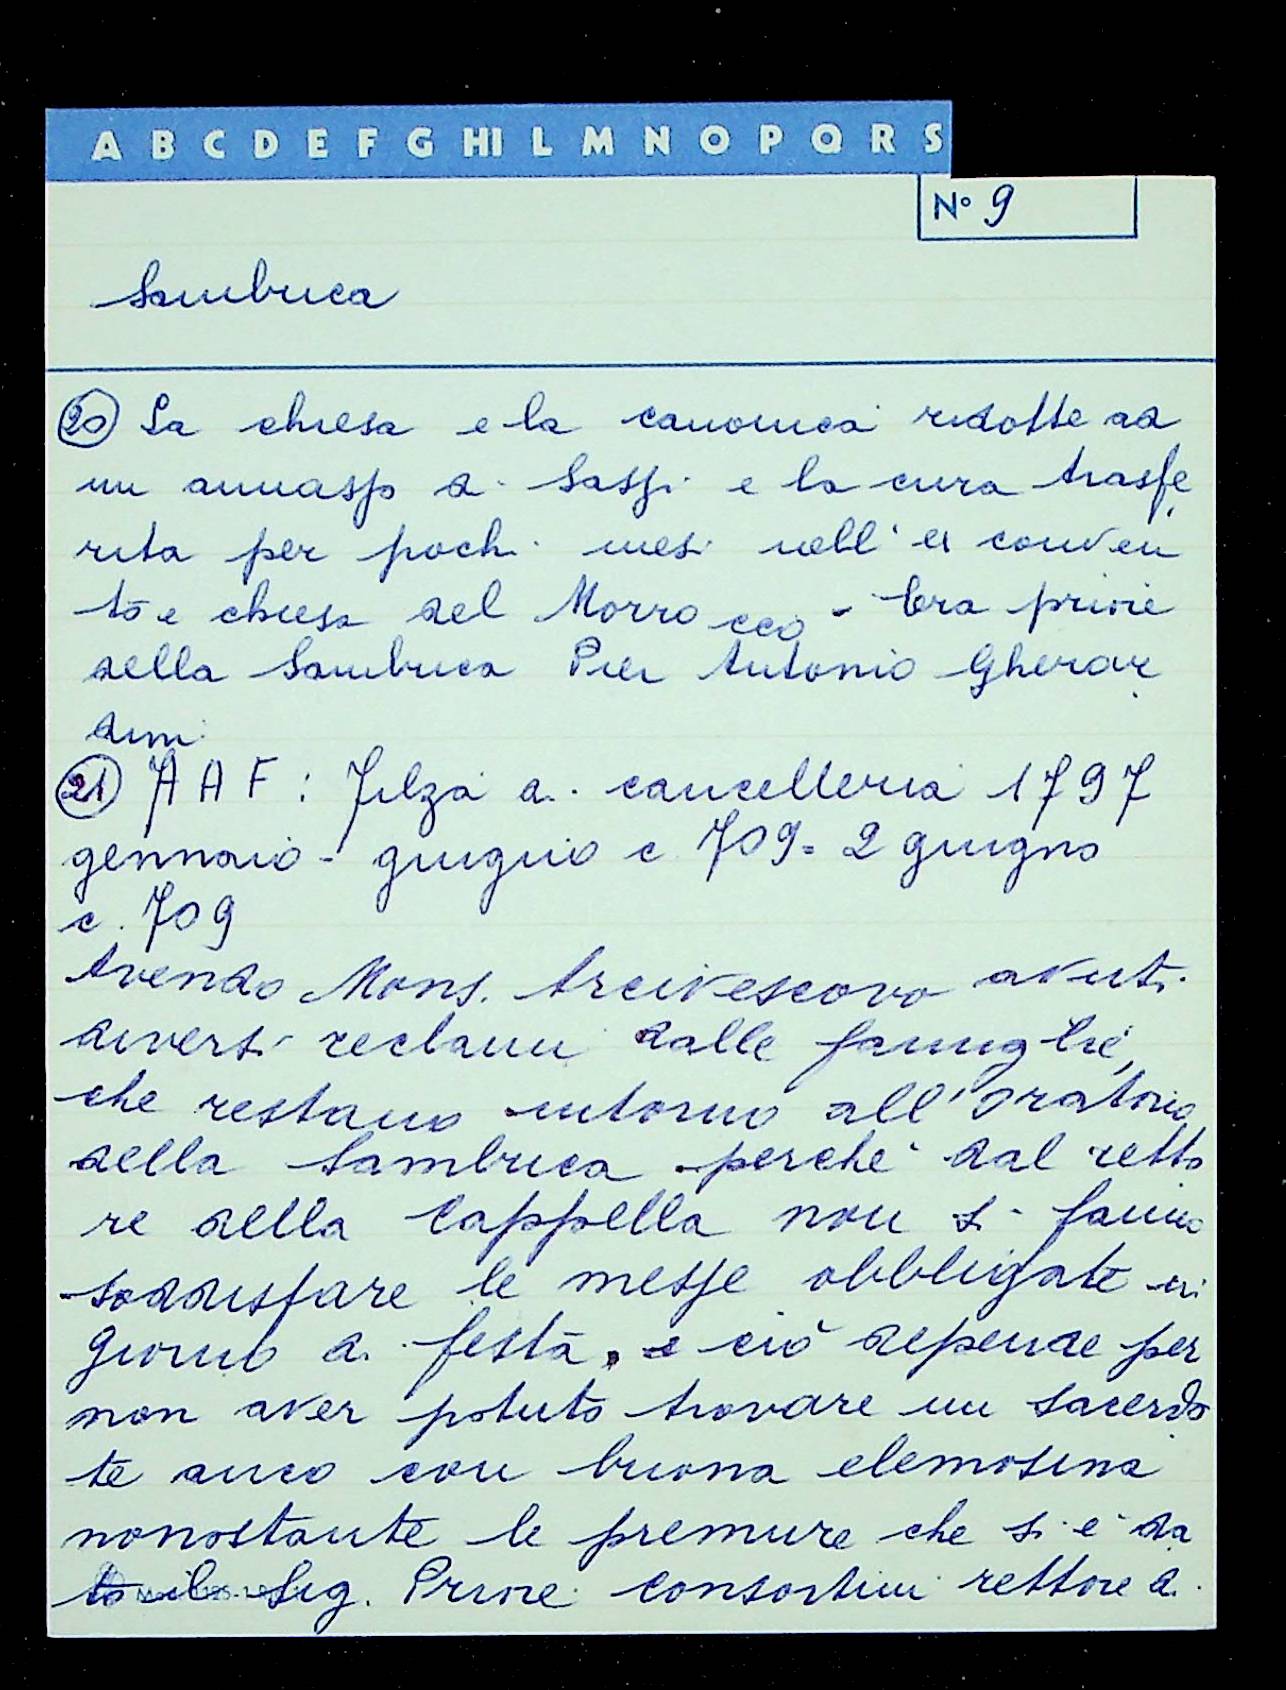 A B C D E F G HI L M N O P Q R S
N° 9
Sambuca
20 La chiesa e la canonica ridotte ad
un ammasso di sassi e la cura trasfe
rita per pochi mesi nell'ex conven
to e chiesa del Morrocco - Era priore
della Sambuca Pier Antonio Gherar
dini
21 A A F : Filza di cancelleria 1797
gennaio - giugno c 709 = 2 giugno
c. 709
Avendo Mons. Arcivescovo avuti
diversi reclami dalle famiglie,
che restano intorno all'oratorio
della Sambuca perché dal retto
re della Cappella non si fanno
soddisfare le messe obbligate in
giorno di festa, e ciò depende per
non aver potuto trovare un sacerdo
te anco con buona elemosina
nonostante le premure che si è da
to il Sig. Priore Consortini rettore di